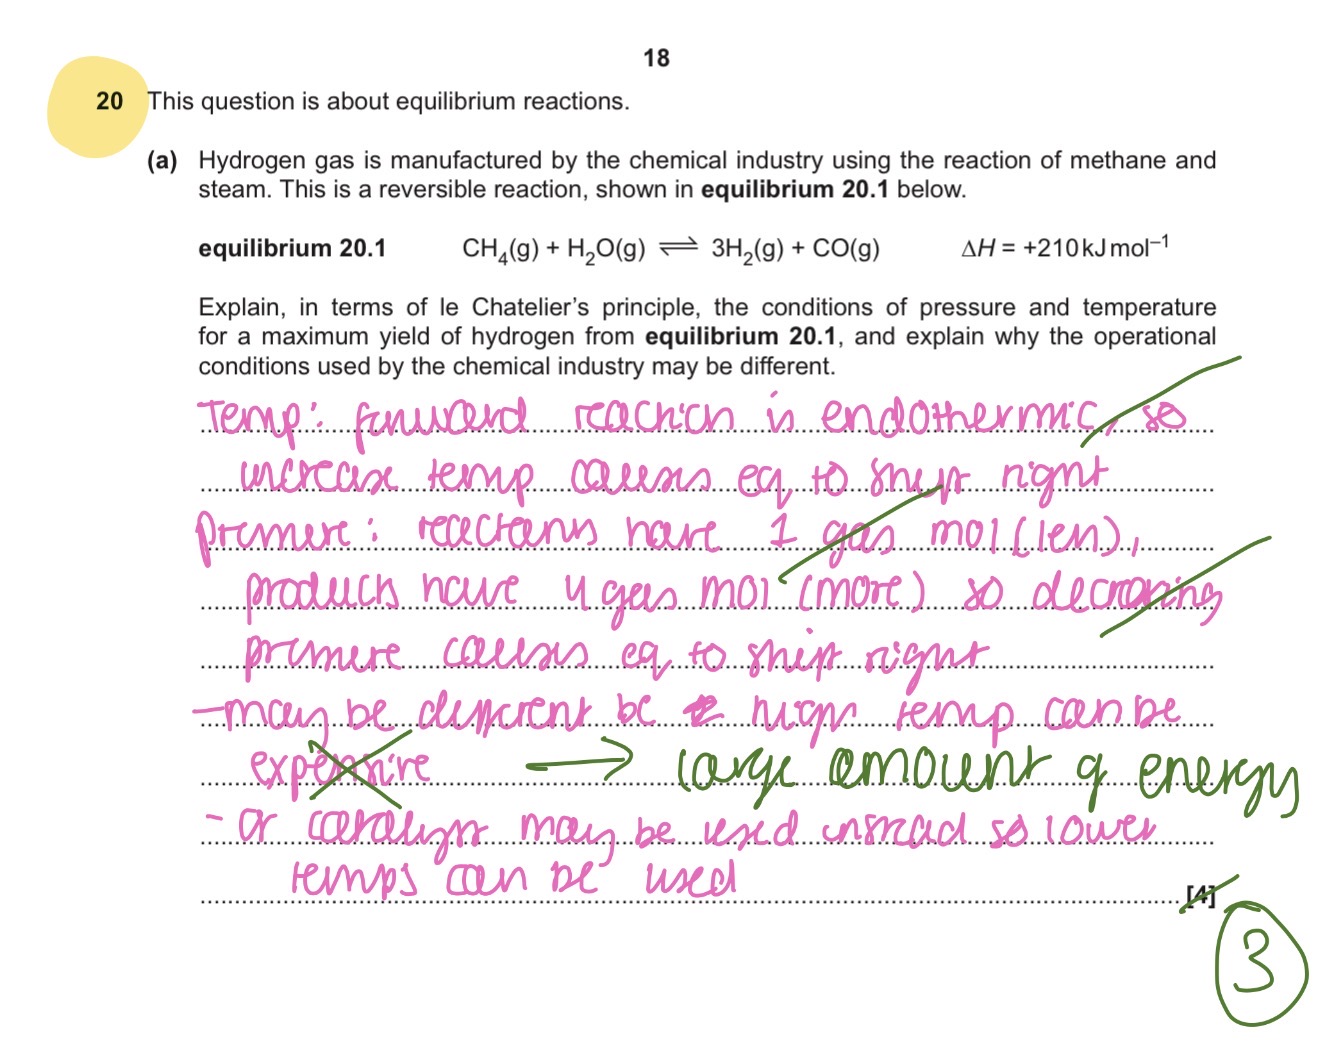 18
20 This question is about equilibrium reactions.
(a) Hydrogen gas is manufactured by the chemical industry using the reaction of methane and
steam. This is a reversible reaction, shown in equilibrium 20.1 below.
equilibrium 20.1 CH₄(g) + H₂O(g) ⇌ 3H₂(g) + CO(g) ΔH = +210 kJ mol⁻¹
Explain, in terms of le Chatelier's principle, the conditions of pressure and temperature
for a maximum yield of hydrogen from equilibrium 20.1, and explain why the operational
conditions used by the chemical industry may be different.
Temp: forward reaction is endothermic, so
increase temp causes eq to shift right
Pressure: reactants have 1 gas mol (less),
products have 4 gas mol (more) so decreasing
pressure causes eq to shift right
- may be different bc high temp can be
expensive → large amount of energy
- or catalyst may be used instead so lower
temps can be used
[4]
3